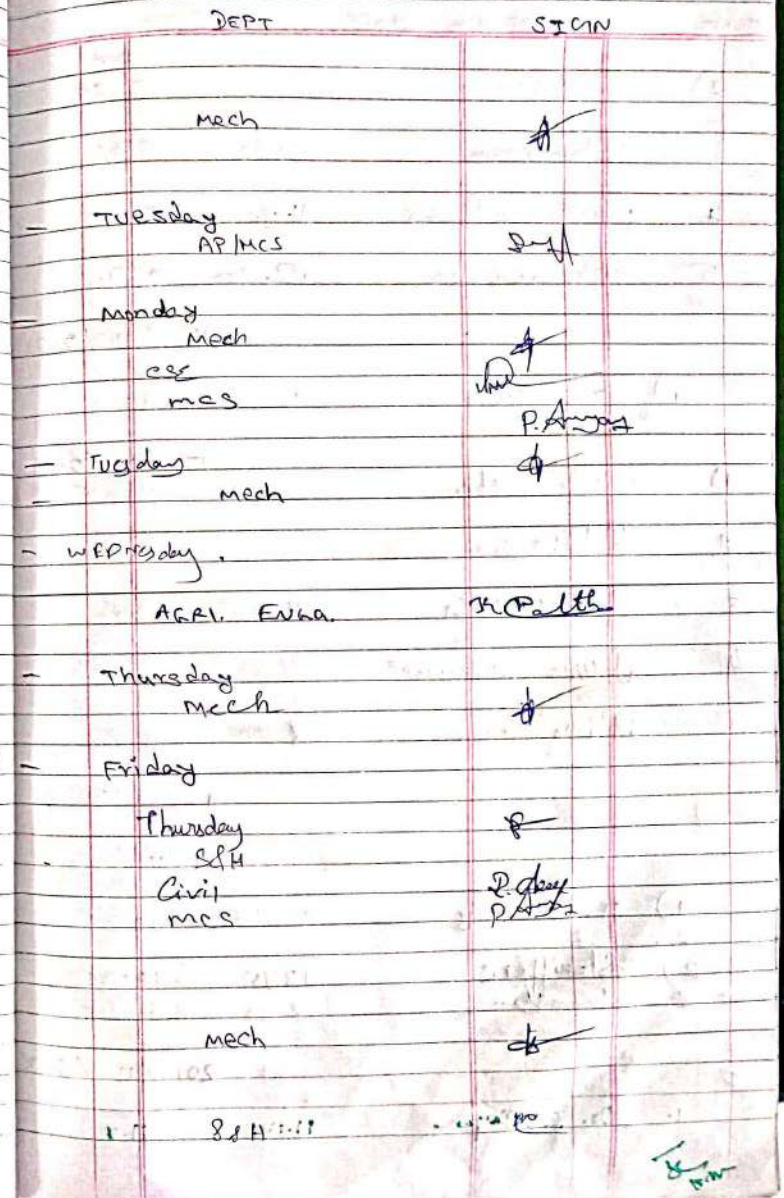 DEPT SIGN
Mech
Tuesday
AP/MCS
Monday
Mech
CSE
MCS
P. Anyay
Tuesday
Mech
WEDNesday.
AGRI. ENGG.
Thursday
Mech
Friday
Thursday
S&H
Civil
MCS
Mech
S&H